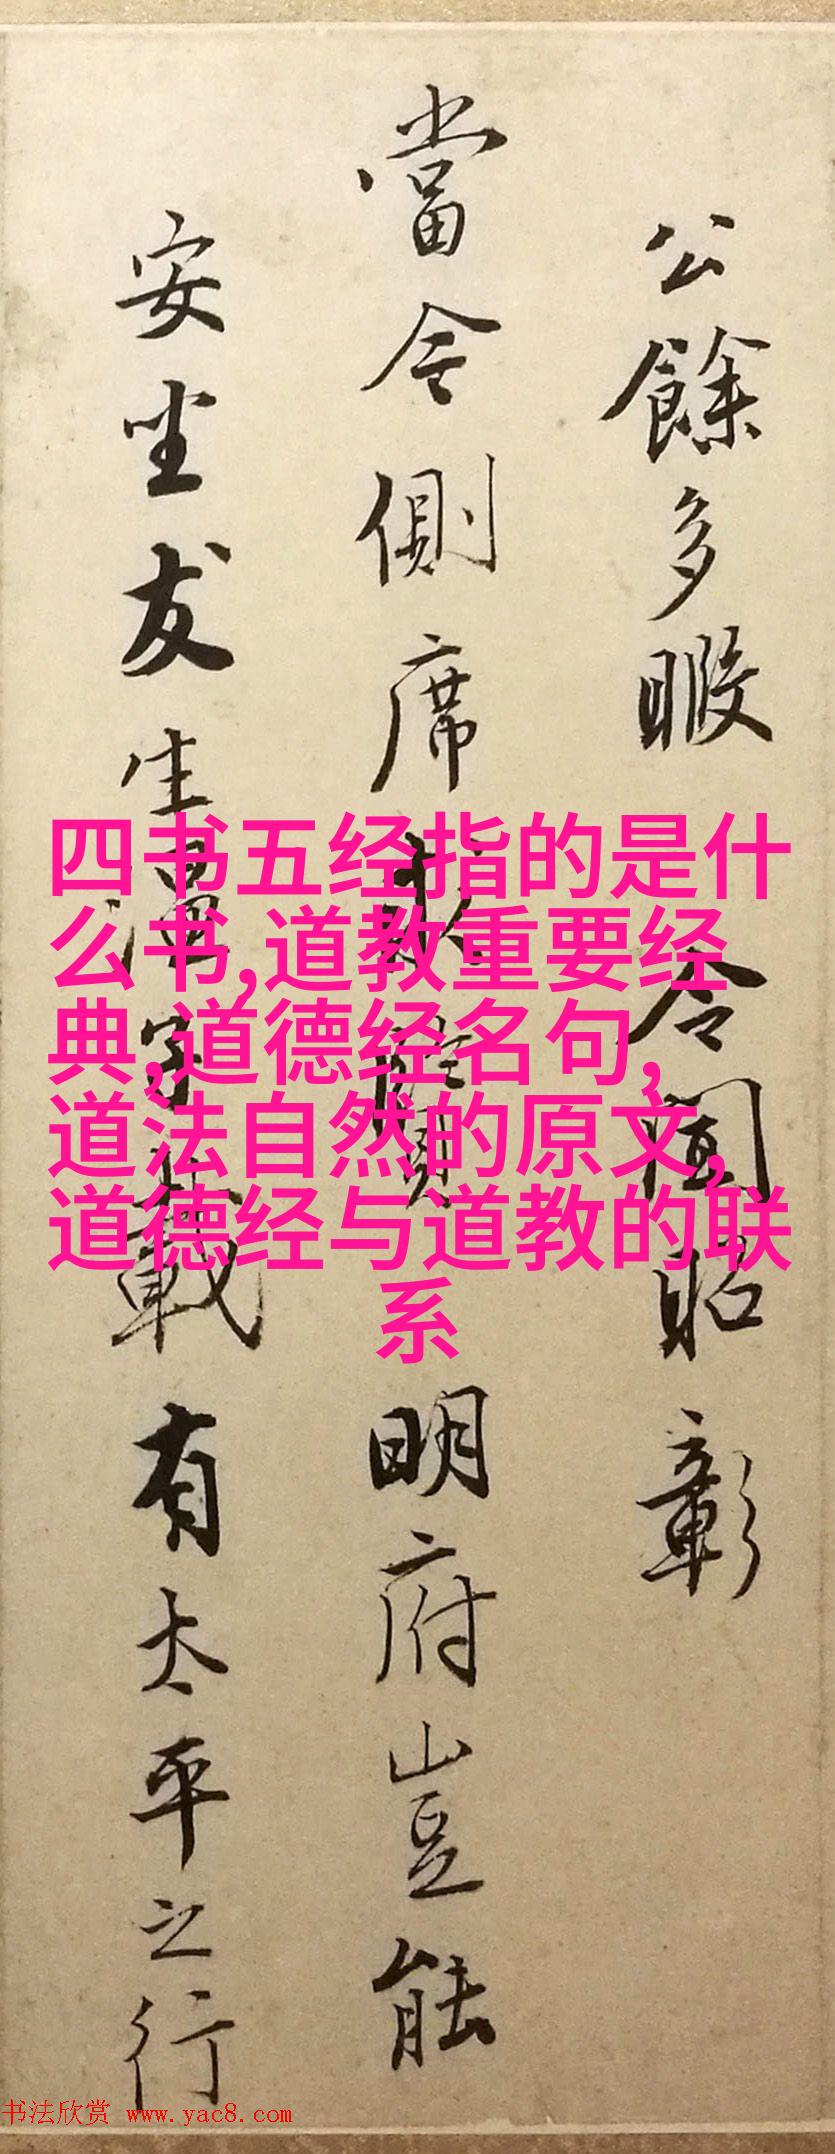 公餘多暇 令聞昭彰
當今側席求賢 明府豈能
安坐友生溫 載有太平之行
四书五经指的是什
么书,道教重要经
典,道德经名句,
道法自然的原文,
道德经与道教的联
系
书法欣赏 www.yac8.com